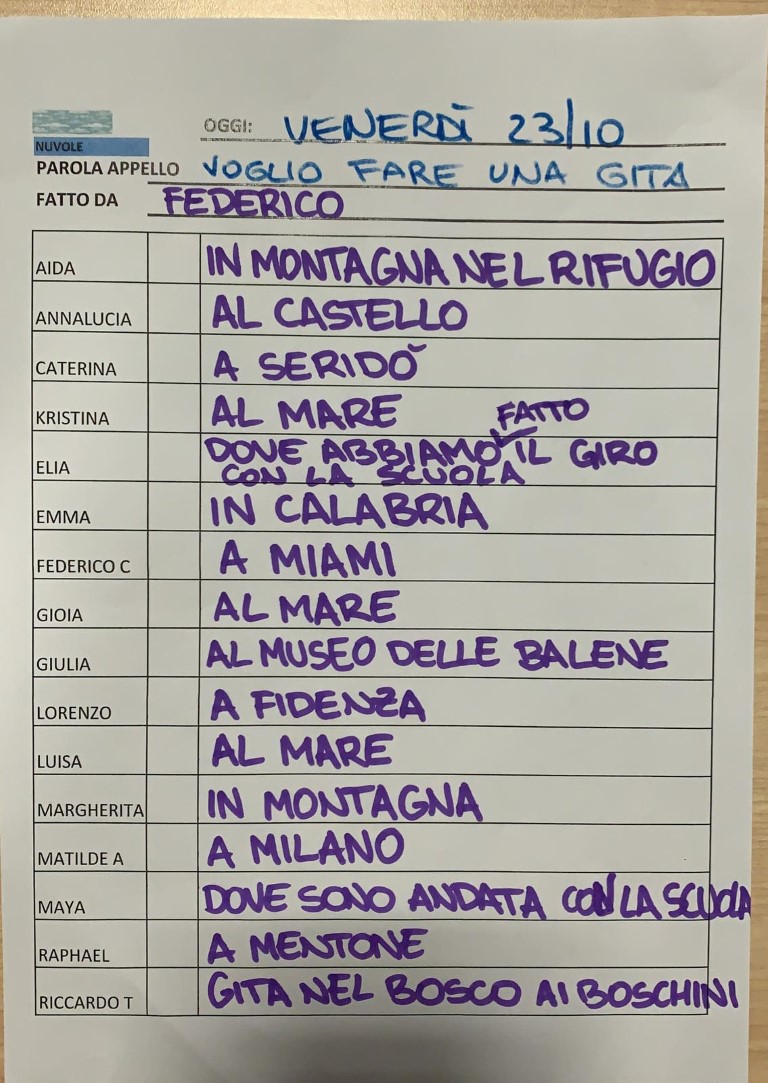 OGGI: VENERDÌ 23/10
NUVOLE
PAROLA APPELLO VOGLIO FARE UNA GITA
FATTO DA FEDERICO
AIDA IN MONTAGNA NEL RIFUGIO
ANNALUCIA AL CASTELLO
CATERINA A SERIDÒ
KRISTINA AL MARE
FATTO
ELIA DOVE ABBIAMO IL GIRO
CON LA SCUOLA
EMMA IN CALABRIA
FEDERICO C A MIAMI
GIOIA AL MARE
GIULIA AL MUSEO DELLE BALENE
LORENZO A FIDENZA
LUISA AL MARE
MARGHERITA IN MONTAGNA
MATILDE A A MILANO
MAYA DOVE SONO ANDATA CON LA SCUOLA
RAPHAEL A MENTONE
RICCARDO T GITA NEL BOSCO AI BOSCHINI